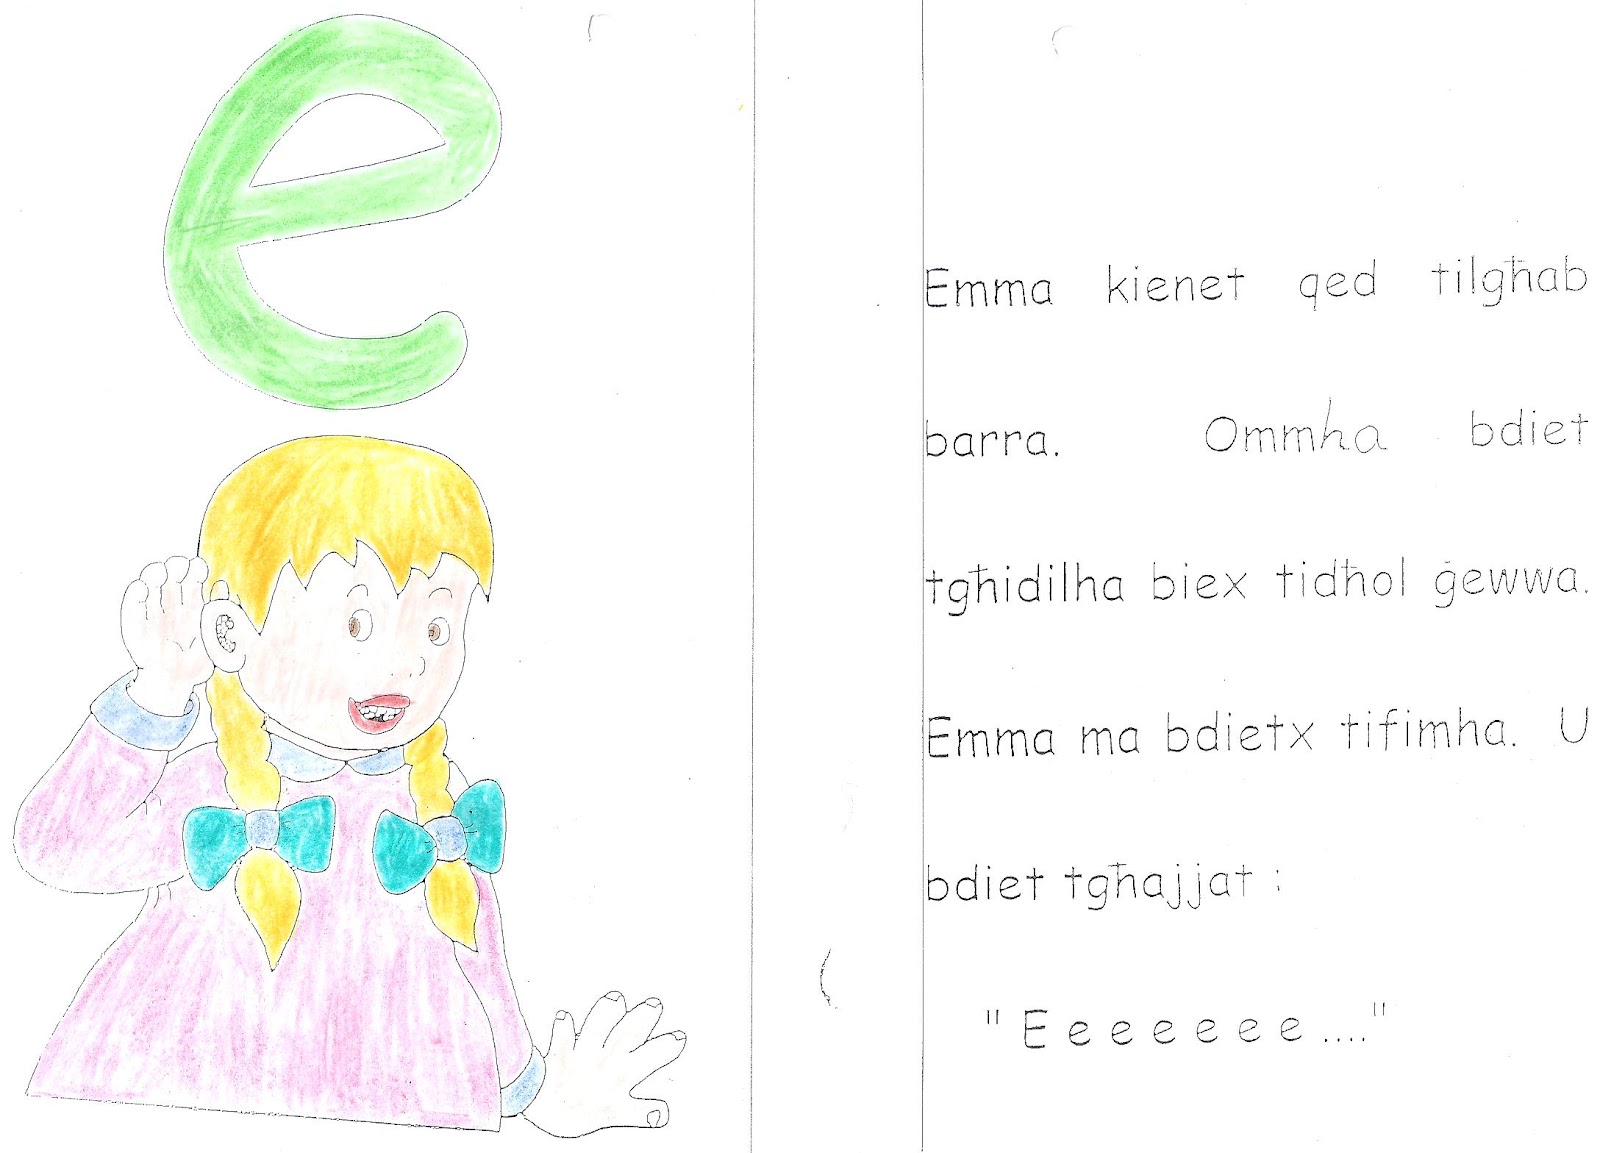 e
Emma kienet qed tilgħab
barra. Ommha bdiet
tgħidilha biex tidħol ġewwa.
Emma ma bdietx tifimha. U
bdiet tgħajjat :
" E e e e e e e ...."